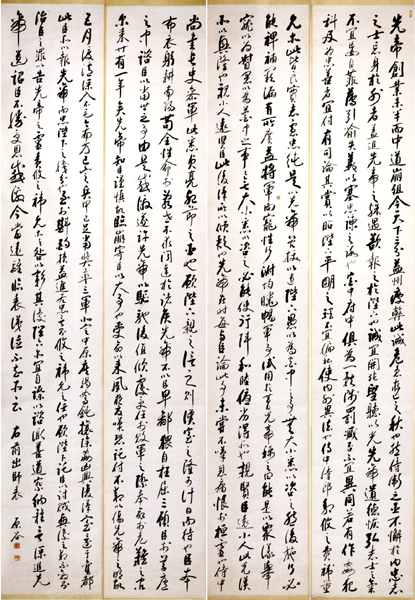 先帝創業未半而中道崩殂今天下三分益州疲弊此誠危急存亡之秋也然侍衛之臣不懈於內忠志
之士忘身於外者蓋追先帝之殊遇欲報之於陛下也誠宜開張聖聽以光先帝遺德恢弘志士之氣
不宜妄自菲薄引喻失義以塞忠諫之路也宮中府中俱為一體陟罰臧否不宜異同若有作姦犯
科及為忠善者宜付有司論其刑賞以昭陛下平明之理不宜偏私使內外異法也侍中侍郎郭攸之費禕董
允等此皆良實志慮忠純是以先帝簡拔以遺陛下愚以為宮中之事事無大小悉以咨之然後施行必
能裨補闕漏有所廣益將軍向寵性行淑均曉暢軍事試用於昔日先帝稱之曰能是以眾議舉
寵以為督愚以為營中之事事無大小悉以咨之必能使行陣和睦優劣得所也親賢臣遠小人此先漢
所以興隆也親小人遠賢臣此後漢所以傾頹也先帝在時每與臣論此事未嘗不歎息痛恨於桓靈也侍中
尚書長史參軍此悉貞亮死節之臣也願陛下親之信之則漢室之隆可計日而待也臣本
布衣躬耕南陽苟全性命於亂世不求聞達於諸侯先帝不以臣卑鄙猥自枉屈三顧臣於草廬
之中諮臣以當世之事由是感激遂許先帝以驅馳後值傾覆受任於敗軍之際奉命於危難之間
爾來廿有一年矣先帝知臣謹慎故臨崩寄臣以大事也受命以來夙夜憂嘆恐託付不效以傷先帝之明故
五月渡瀘深入不毛今南方已定兵甲已足當獎率三軍北定中原庶竭駑鈍攘除姦凶興復漢室還于舊都
此臣所以報先帝而忠陛下之職分也至於斟酌損益進盡忠言則攸之禕允之任也願陛下託臣以討賊興復之效不效則
治臣之罪以告先帝之靈責攸之禕允之咎以彰其慢陛下亦宜自課以諮諏善道察納雅言深追先
帝遺詔臣不勝受恩感激今當遠離臨表涕泣不知所云 右前出師表 原谷